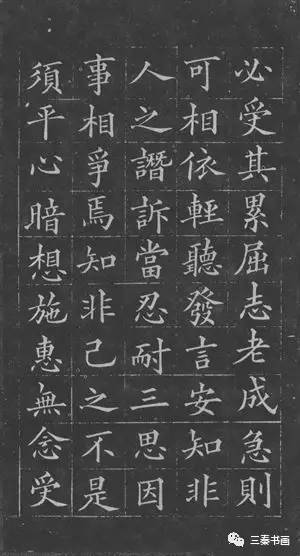 必受其累屈志老成急則
可相依輕聽發言安知非
人之譖訴當忍耐三思因
事相爭焉知非己之不是
須平心暗想施惠無念受
三秦书画